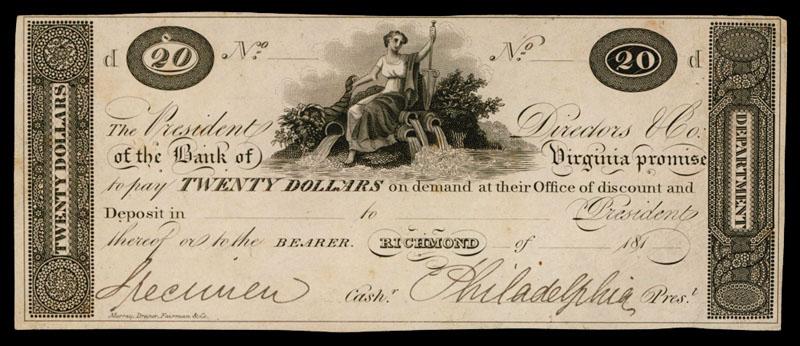 d 20 No. No. 20 d
The President Directors & Co:
of the Bank of Virginia promise
to pay TWENTY DOLLARS on demand at their Office of discount and
Deposit in to President
thereof or to the BEARER. RICHMOND of 181
Specimen Cash.r Philadelphia Pres.t
Murray, Draper, Fairman & Co.
TWENTY DOLLARS
DEPARTMENT